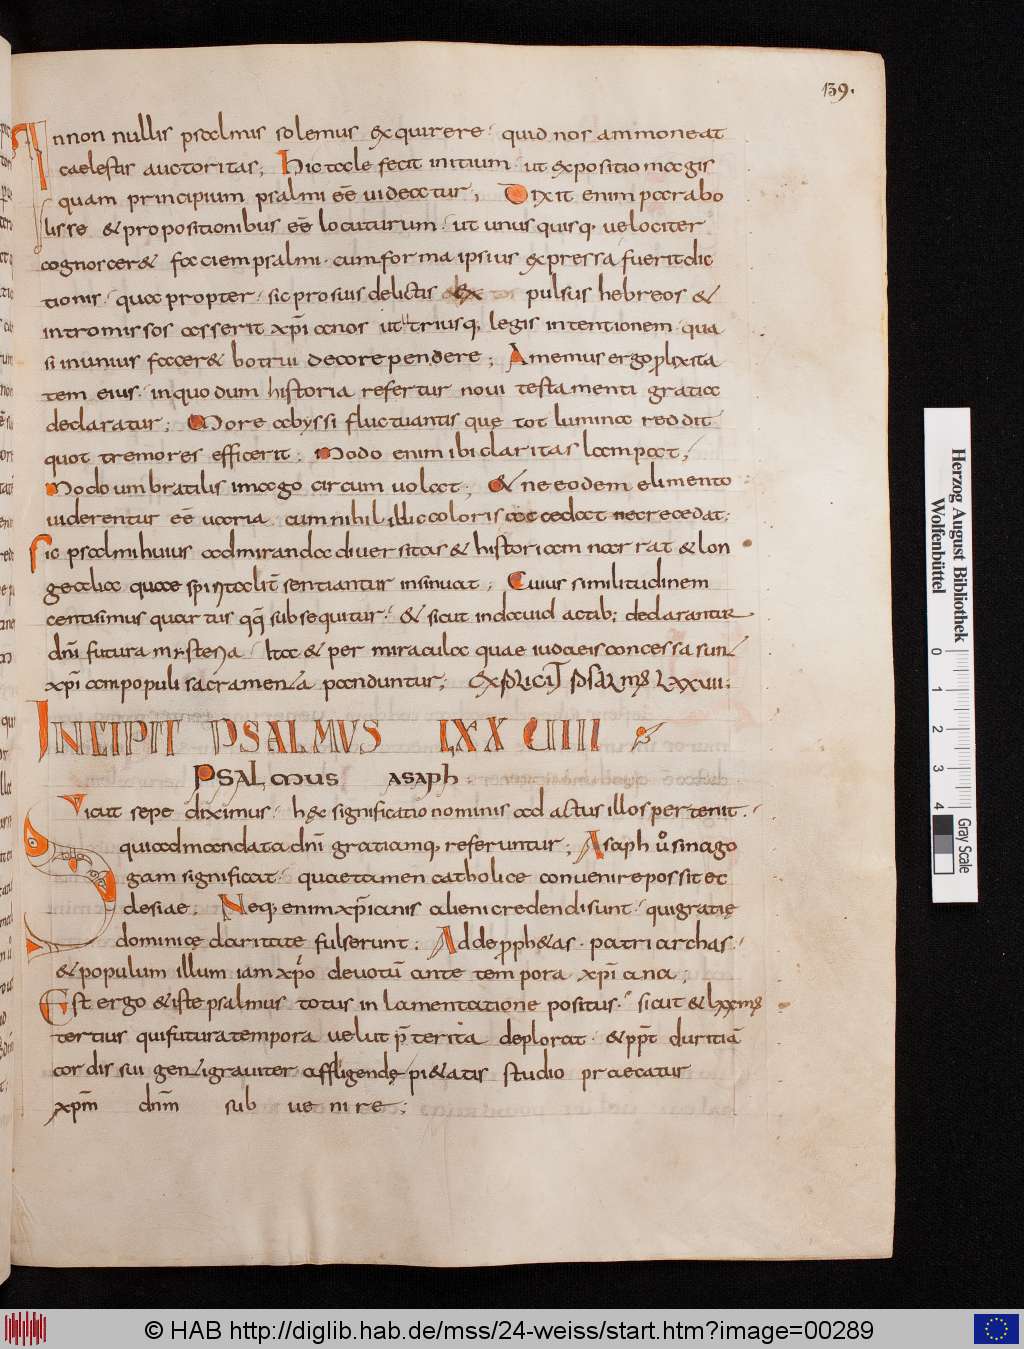 139.
In non nullis psalmis solemus exquirere · quid nos ammoneat
caelestis auctoritas; Hic tale fecit initium · ut expositio magis
quam principium psalmi eē uideatur; Dixit enim parabo
lis se & propositionibus eē locuturum · ut unus quisq· uelociter
cognoscer& faciem psalmi · cum forma ipsius expressa fuerit dic
tionis · qua propter · sic pro suis delictis pulsus hebreos &
intromissos asserit xp̄ianos utriusq· legis intentionem · qua
si in unius facer& botrui decore pendere; Amemus ergo prolixita
tem eius · in quo dum historia refertur noui testamenti gratia
declaratur; More abyssi fluctuantis que tot lumina reddit
quot tremores efficerit; Modo enim ibi claritas lampat;
Modo umbratilis imago circum uolat; & ne eodem elimento
uiderentur eē uaria cum nihil illic coloris accedat nec recedat;
Sic psalmi huius admiranda diuersitas & historiam narrat & lon
ge alia quae spiritalit̄ sentiantur insinuat; Cuius similitudinem
centisimus quartus qq̄ subsequitur · & sicut in dauid actib; declarantur
dn̄i futura mysteria · Ita & per miracula quae iudaeis concessa sunt
xp̄iam populi sacramenta panduntur; EXPLICIT PSALMUS LXXIII;
INCIPIT PSALMUS LXXUIIII
PSALMUS ASAPH ·
Sicut sepe diximus · hęc significatio nominis ad actus illos pertenit ·
qui ad mandata dn̄i gratiamq· referuntur; Asaph ůo sinago
gam significat · quae tamen catholice conuenire possit ec
clesiae; Neq· enim xp̄ianis alieni credendi sunt · qui gratię
dominicę claritate fulserunt; Adde proph&as · patriarchas ·
& populum illum iam xp̄o deuotū ante tempora xp̄iana;
Est ergo & iste psalmus totus in lamentatione positus · sicut & lxxmus
tertius qui futura tempora uelut p̄terita deplorat · & pp̄t duritiā
cordis sui genti grauiter affligendę pi&atis studio praecatur
xp̄m dn̄m subuenire;
Herzog August Bibliothek
Wolfenbüttel
0 1 2 3 4
Gray Scale
© HAB http://diglib.hab.de/mss/24-weiss/start.htm?image=00289